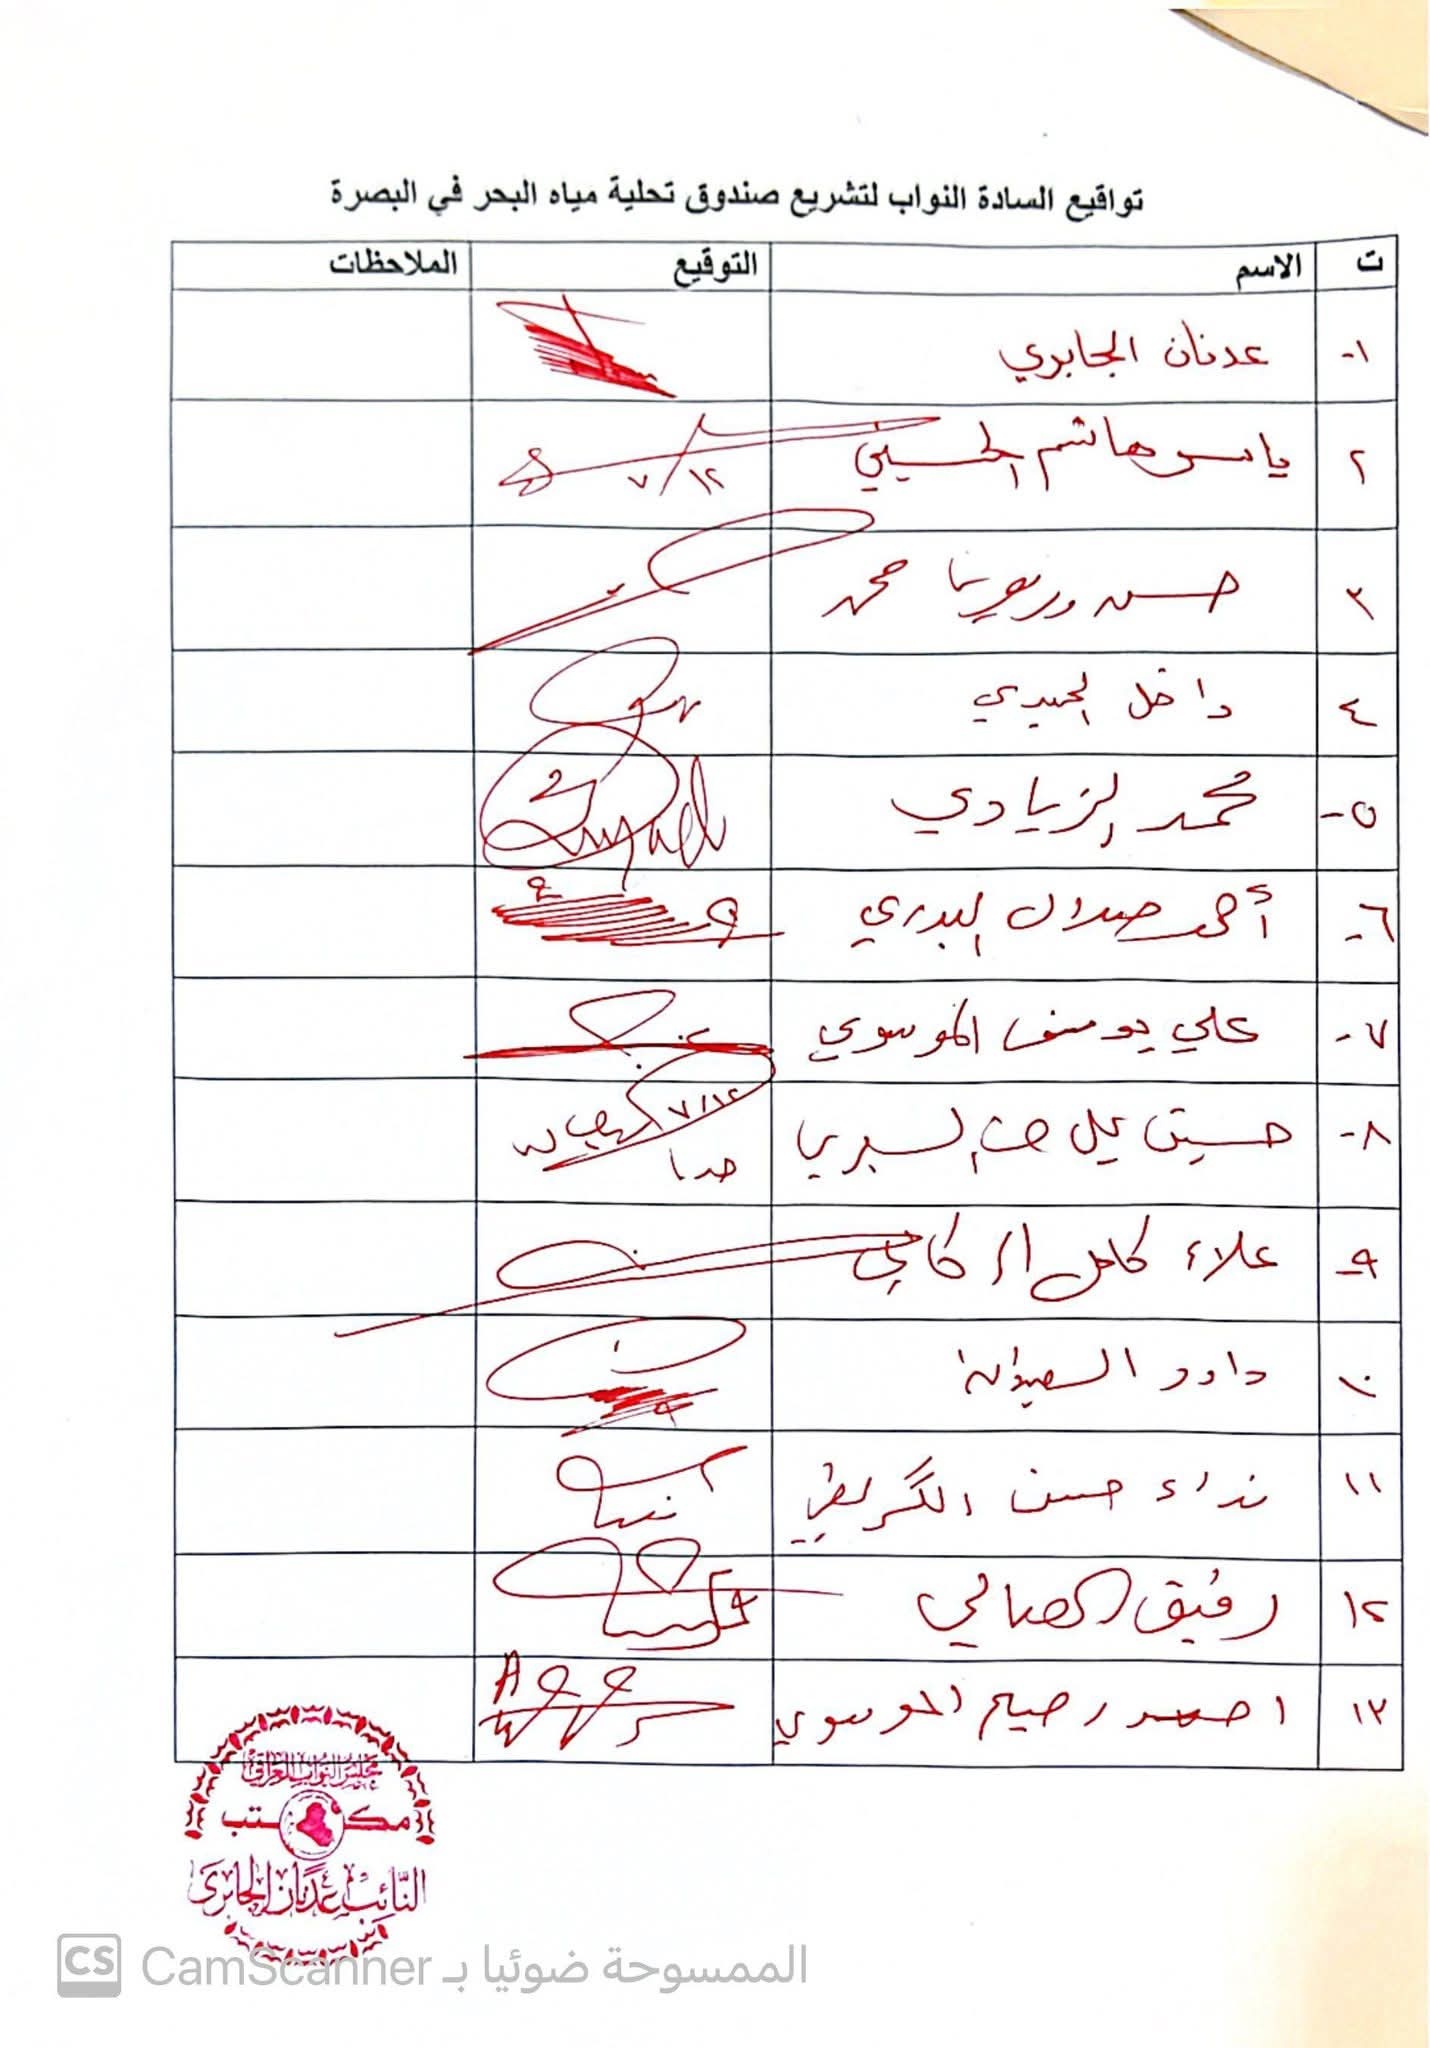 تواقيع السادة النواب لتشريع صندوق تحلية مياه البحر في البصرة
ت الاسم التوقيع الملاحظات
١- عدنان الجابري
٢ ياسر هاشم الحسيني ٧/١٢
٣ حسن وريوش محمد
٤ داخل
٥- محمد الزيادي
٦- أحمد صلال البدري
٧- علي يوسف الموسوي
٨- حسين علي ٧/١٢
٩- علاء كامل الركابي
١٠ داود
١١ نداء حسن
١٢ رفيق الصالحي
١٣ احمد رحيم الموسوي
مجلس النواب العراقي
مكتب
النائب عدنان الجابري
CS CamScanner الممسوحة ضوئيا بـ